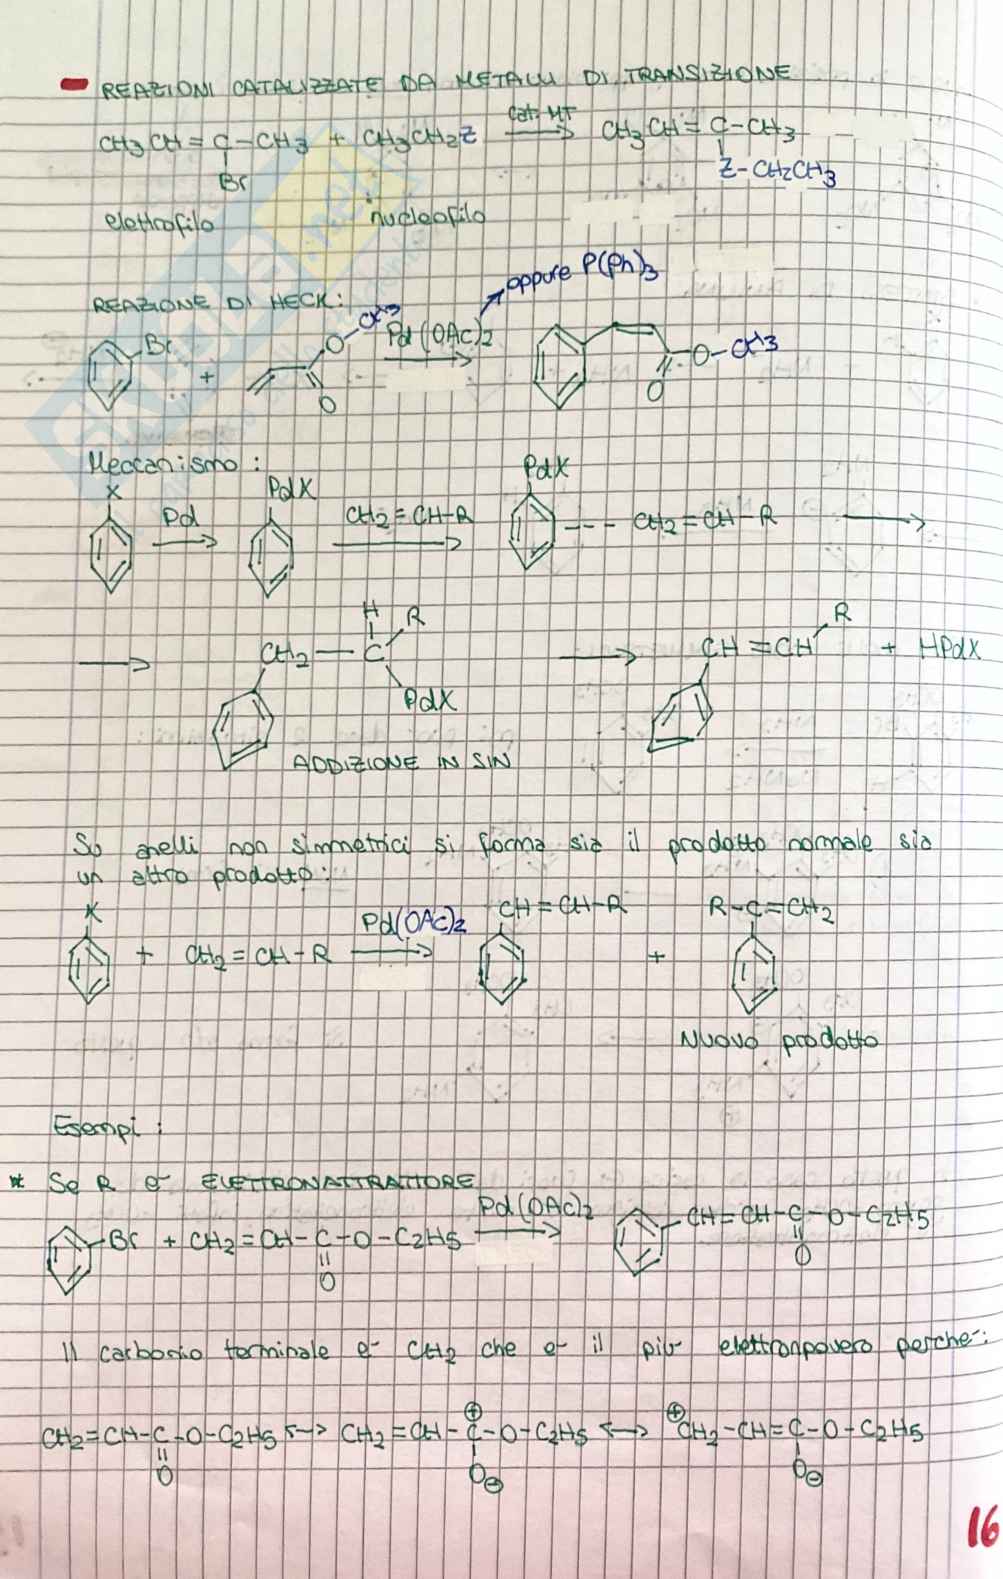 REAZIONI CATALIZZATE DA METALLI DI TRANSIZIONE
CH3CH=C-CH3 + CH3CH2Z cat. MT CH3CH=C-CH3
Br Z-CH2CH3
elettrofilo nucleofilo
oppure P(Ph)3
REAZIONE DI HECK:
Br + O-CH3 O Pd(OAc)2 O-CH3 O
Meccanismo:
X Pd PdX CH2=CH-R PdX --- CH2=CH-R
CH2-C H R PdX CH=CH R + HPdX
ADDIZIONE IN SIN
Su anelli non simmetrici si forma sia il prodotto normale sia
un altro prodotto:
X + CH2=CH-R Pd(OAc)2 CH=CH-R + R-C=CH2
Nuovo prodotto
Esempi:
* Se R è ELETTRONATTRATTORE
Br + CH2=CH-C-O-C2H5 Pd(OAc)2 CH=CH-C-O-C2H5
O O
Il carbonio terminale è CH2 che è il più elettronpovero perchè:
CH2=CH-C-O-C2H5 <-> CH2=CH-C-O-C2H5 <-> CH2-CH=C-O-C2H5
O ⊕ O⊖ ⊕ O⊖
16